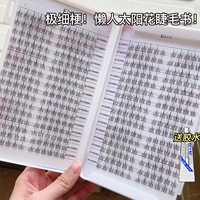 极细梗！懒人太阳花睫毛书！
送胶水